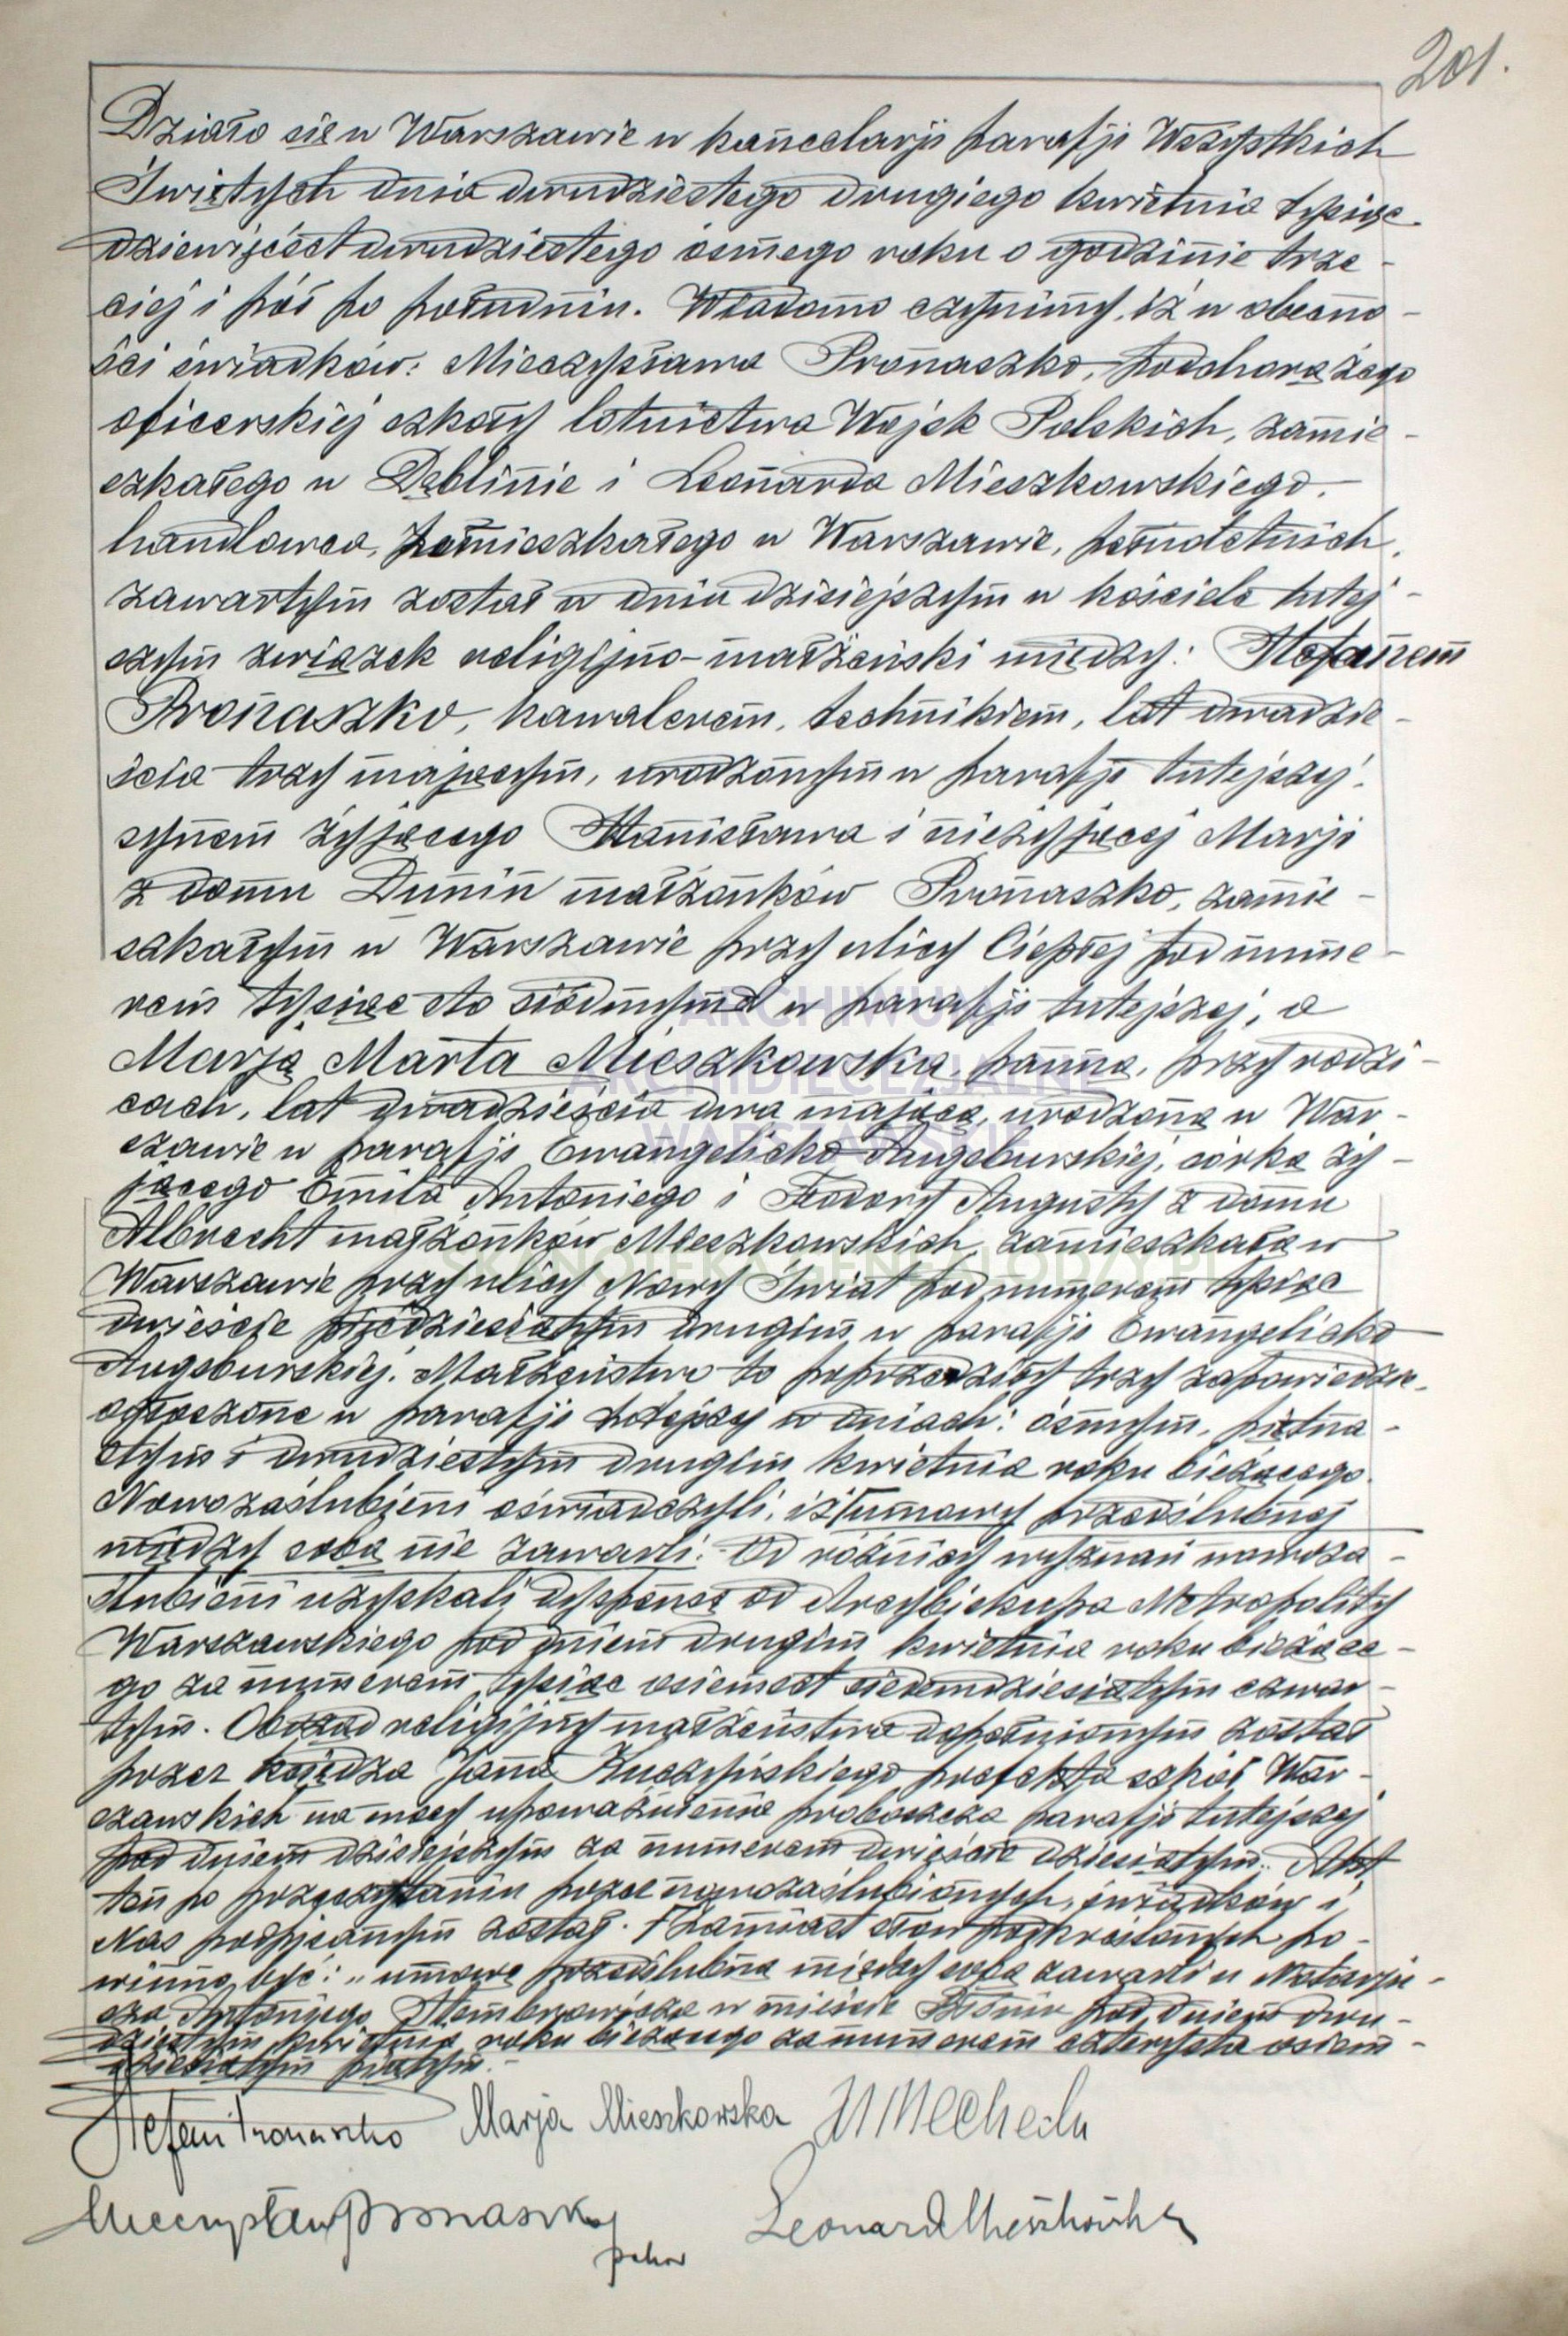 201.
Działo się w Warszawie w kancelarji parafji Wszystkich
Świętych dnia dwudziestego drugiego kwietnia tysiąc
dziewięćset dwudziestego ósmego roku o godzinie trze-
ciej i pół po południu. Wiadomo czynimy, iż w obecno-
ści świadków: Mieczysława Pronaszko, podchorążego
oficerskiej szkoły lotnictwa Wojsk Polskich, zamie-
szkałego w Dęblinie i Leonarda Mieszkowskiego,
handlowca, zamieszkałego w Warszawie, pełnoletnich,
zawartym został w dniu dzisiejszym w kościele tutej-
szym związek religijno-małżeński między: Stefanem
Pronaszko, kawalerem, technikiem, lat dwadzie-
ścia trzy mającym, urodzonym w parafji tutejszej,
synem żyjącego Stanisława i nieżyjącej Marji
z domu Dunin małżonków Pronaszko, zamie-
szkałym w Warszawie przy ulicy Ciepłej pod nume-
rem tysiąc sto siódmym w parafji tutejszej, a
Marją Martą Mieszkowską, panną, przy rodzi-
cach, lat dwadzieścia dwa mającą, urodzoną w War-
szawie w parafji Ewangelicko-Augsburskiej, córką ży-
jącego Emila Antoniego i Teodory Augusty z domu
Albrecht małżonków Mieszkowskich, zamieszkałą w
Warszawie przy ulicy Nowy Świat pod numerem tysiąc
dwieście pięćdziesiątym drugim w parafji Ewangelicko
Augsburskiej. Małżeństwo to poprzedziły trzy zapowiedzie
ogłoszone w parafji tutejszej w dniach: ósmym, piętna-
stym i dwudziestym drugim kwietnia roku bieżącego.
Nowozaślubieni oświadczyli, iż umowy przedślubnej
między sobą nie zawarli. Od różnicy wyznań nowoza-
ślubieni uzyskali dyspensę od Arcybiskupa Metropolity
Warszawskiego pod dniem drugim kwietnia roku bieżące-
go za numerem tysiąc osiemset siedemdziesiątym czwar-
tym. Obrzęd religijny małżeństwa dopełnionym został
przez księdza Jana Kuczyńskiego prefekta szkół War-
szawskich na mocy upoważnienia proboszcza parafji tutejszej
pod dniem dzisiejszym za numerem dwieście dziesiątym. Akt
ten po przeczytaniu przez nowozaślubionych, świadków i
Nas podpisanym został. Zamiast słów podkreślonych po-
winno być: "umowę przedślubną między sobą zawarli u Notarju-
sza Antoniego w mieście pod dniem dwu-
dziestym kwietnia roku bieżącego za numerem czterysta osiem-
dziesiątym piątym.-
Stefan Pronaszko Marja Mieszkowska
Mieczysław Pronaszko Leonard Mieszkowski
pchor
ARCHIWUM
ARCHIDIECEZJALNE
WARSZAWSKIE